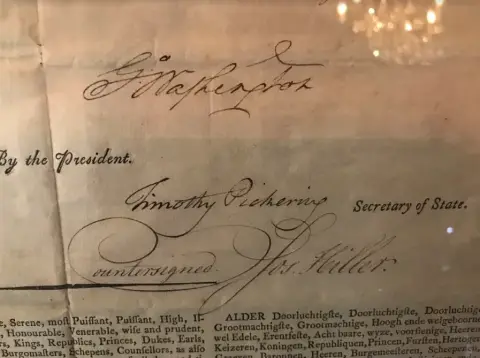 G:º Washington
By the President.
Timothy Pickering Secretary of State.
Countersigned Jos. Hiller.
e, Serene, moſt Puiſſant, Puiſſant, High, Il-
s, Honourable, Venerable, wiſe and prudent,
rs, Kings, Republics, Princes, Dukes, Earls,
Burgomaſters, Schepens, Counſellors, as alſo
ALDER Doorluchtigſte, Doorluchtigſte, Doorluchtige
Grootmachtigſte, Grootmachtige, Hoogh ende welgeboorne
wel Edele, Erenfeſte, Acht baare, wyze, voorſienige, Heeren
Keizeren, Koningen, Republiquen, Princen, Furſten, Hertogen
Baronnen, Heeren, Burgemeeſteren, Schepenen